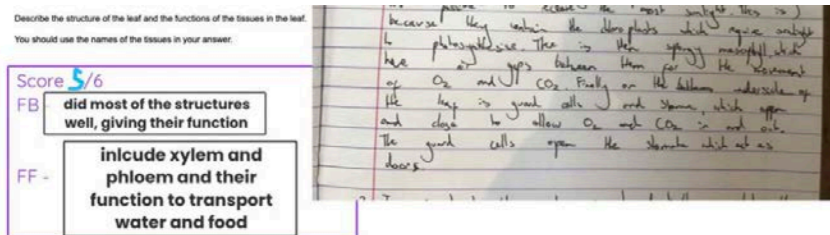 Describe the structure of the leaf and the functions of the tissues in the leaf.
You should use the names of the tissues in your answer.
Score 5/6
FB
did most of the structures
well, giving their function
FF -
inlcude xylem and
phloem and their
function to transport
water and food
the most sunlight. This is
because they contain the chloroplasts which
photosynthesise. There is then spongy mesophyll which
have air gaps between them for the movement
of O2 and CO2 Finally on the underside of
the leaf is guard cells and stomata, which open
and close to allow O2 and CO2 in and out.
The guard cells open the stomata which act as
doors.